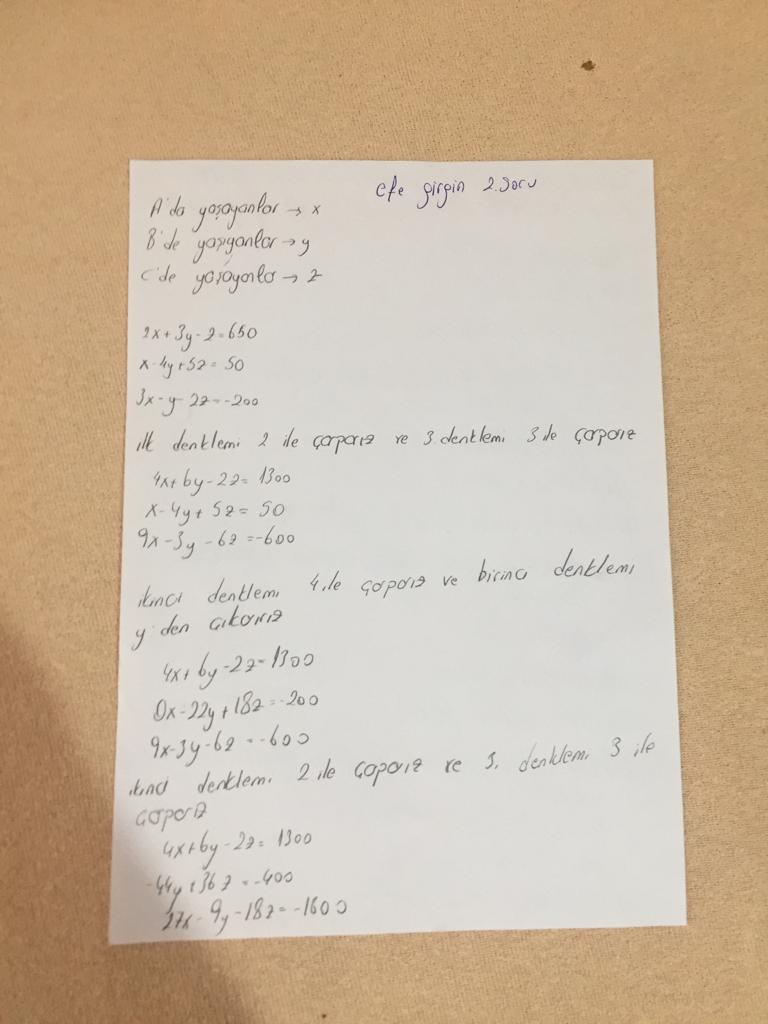 efe girgin 2.soru
A'da yaşayanlar → x
B'de yaşıyanlar → y
C'de yaşayanla → z
2x+3y-z=650
x-4y+5z=50
3x-y-2z=-200
ilk denklemi 2 ile çarparız ve 3.denklemi 3 ile çarparız
4x+6y-2z=1300
x-4y+5z=50
9x-3y-6z=-600
ikinci denklemi 4 ile çarparız ve birinci denklemi
y'den çıkarırız
4x+6y-2z=1300
0x-22y+18z=-200
9x-3y-6z=-600
ikinci denklemi 2 ile çaparız ve 3. denklemi 3 ile
çaparız
4x+6y-2z=1300
-44y+36z=-400
27x-9y-18z=-1600